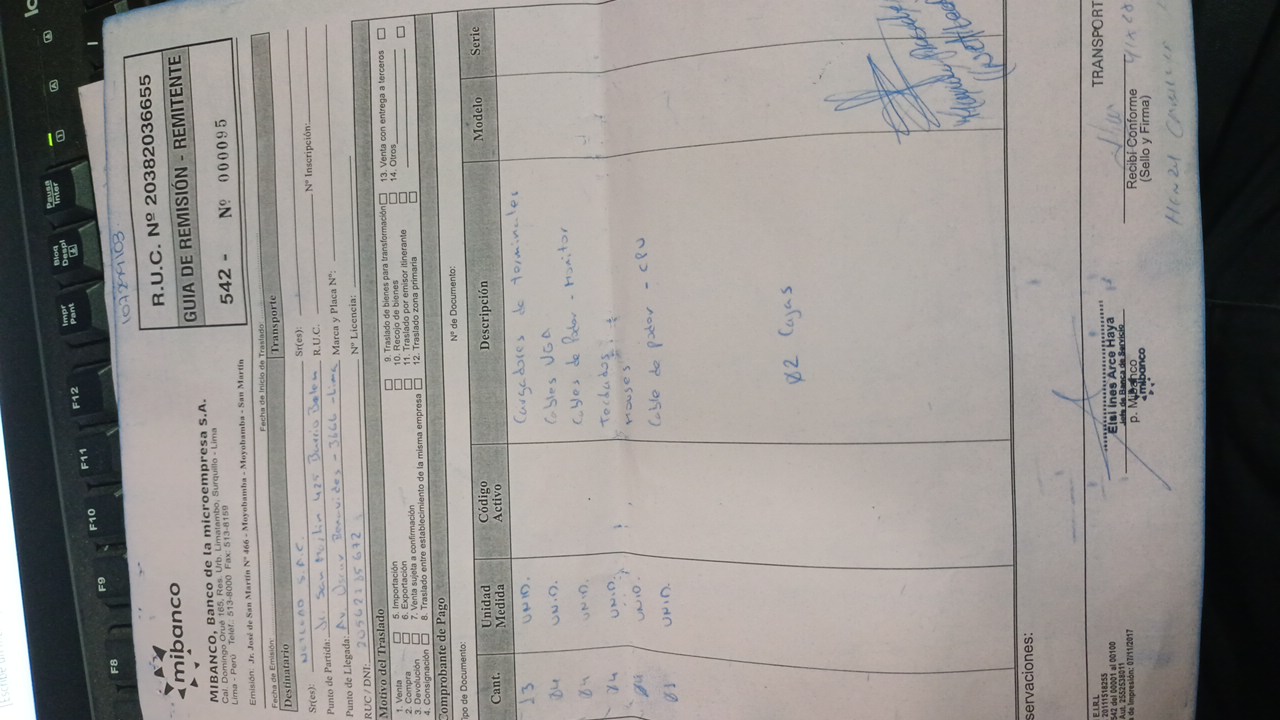 mibanco
MIBANCO, Banco de la microempresa S.A.
Cal. Domingo Orué 165, Res. Urb. Limatambo, Surquillo - Lima
Lima - Perú Teléf.: 513-8000 Fax: 513-8159
Emisión: Jr. José de San Martín N° 466 - Moyobamba - Moyobamba - San Martín
R.U.C. Nº 20382036655
GUIA DE REMISIÓN - REMITENTE
542 - Nº 000095
Fecha de Emisión: Fecha de Inicio de Traslado:
Destinatario Transporte
Sr(es): S.A.C. Sr(es):
Punto de Partida: Jr. San Martin 425 Barrio Belen R.U.C. Nº Inscripción:
Punto de Llegada: Av. Benavides - 3666 - Lima Marca y Placa Nº:
RUC / DNI: Nº Licencia:
Motivo del Traslado
1. Venta 5. Importación 9. Traslado de bienes para transformación 13. Venta con entrega a terceros
2. Compra 6. Exportación 10. Recojo de bienes 14. Otros
3. Devolución 7. Venta sujeta a confirmación 11. Traslado por emisor itinerante
4. Consignación 8. Traslado entre establecimiento de la misma empresa 12. Traslado zona primaria
Comprobante de Pago
Tipo de Documento: Nº de Documento:
Cant. Unidad Medida Código Activo Descripción Modelo Serie
13 UNID. Cargadores de terminales
04 UNID. Cables VGA
04 UNID. Cables de Poder - Monitor
04 UNID. Teclados
04 UNID. mouses
03 UNID. Cable de poder - CPU
02 Cajas
servaciones:
E.I.R.L
20111518255
542 del 00001 al 00100
Aut. 2552538011
de Impresión: 07/11/2017
Elsi Ines Arce Haya
Jefe de Banca de Servicio
p. Mibanco
mibanco
TRANSPORT
Recibí Conforme
(Sello y Firma)
F8
F9
F10
F11
F12
Impr
Pant
Bloq
Despl
Pausa
Inter